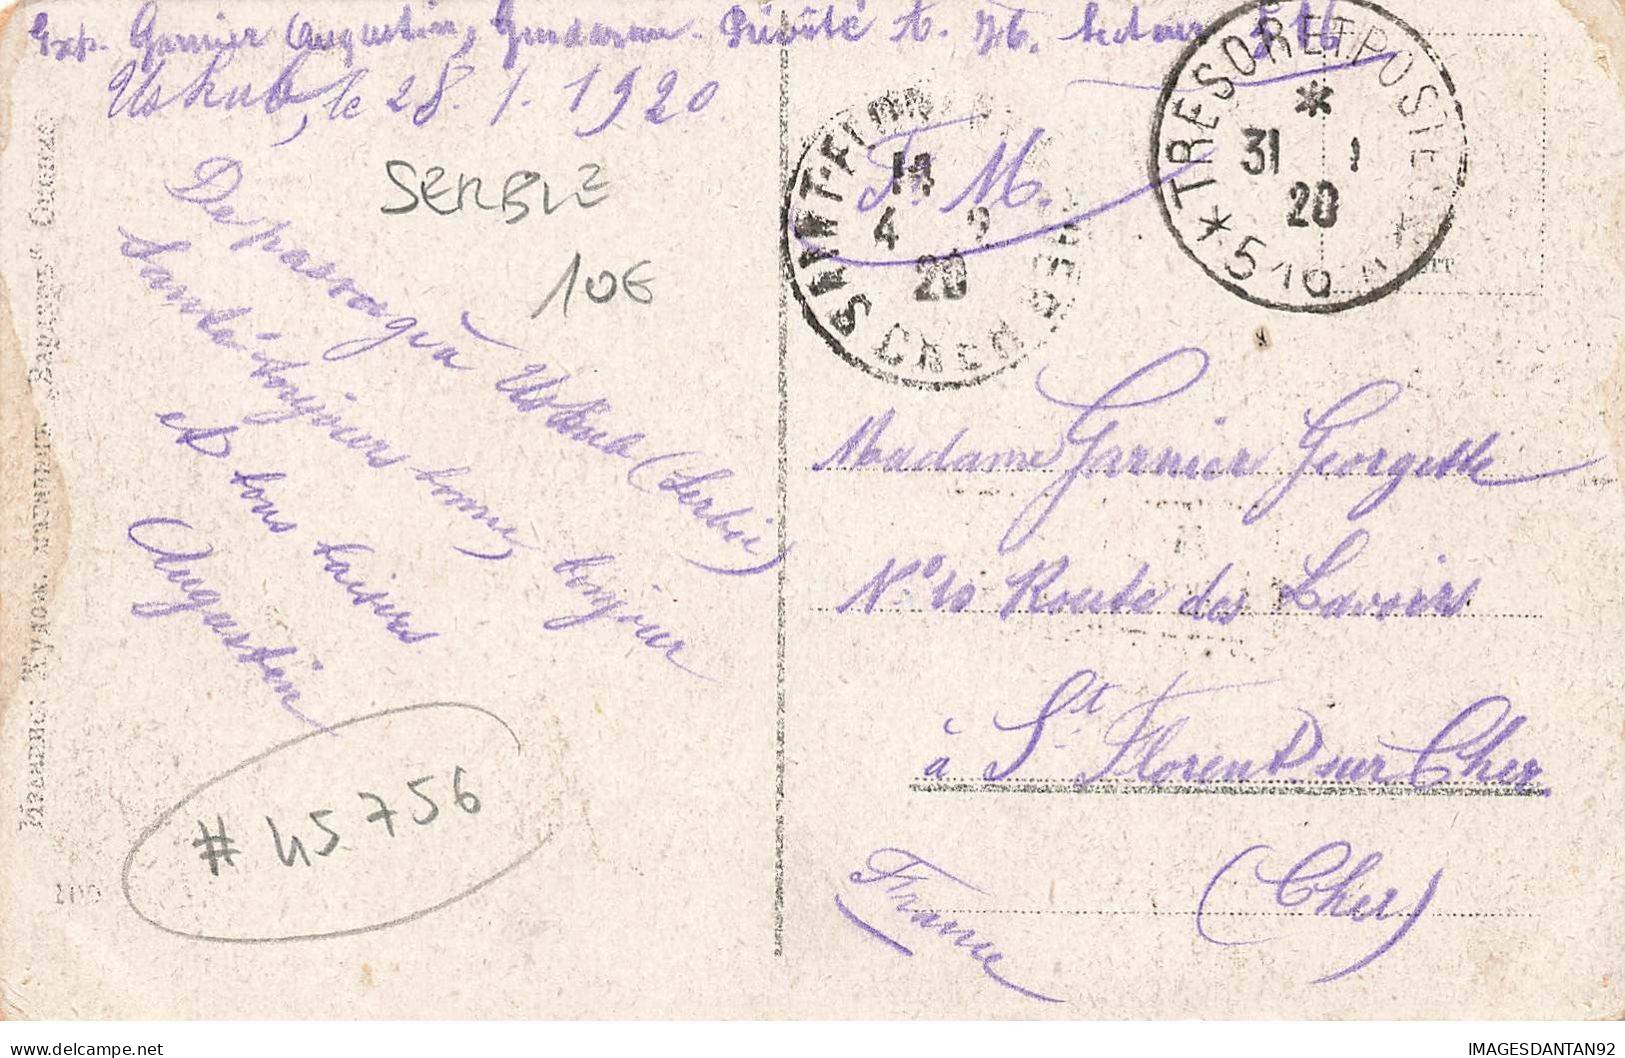 Exp. Garnier Augustin, Gendarme. Prévôté A. Secteur 516
Uskub, le 28.1.1920.
SERBIE
10€
De passage à Uskub (Serbie)
Santé toujours bonne, bonjour
et bons baisers
Augustin
#45756
F. M.
SAINT-FLORENT S CHER
14
4 2
20
TRESOR ET POSTES
* 516 *
31 1
20
Madame Garnier Georgette
N° 10 Route des Lavoirs
à St Florent sur Cher
(Cher)
France
IMAGESDANTAN92